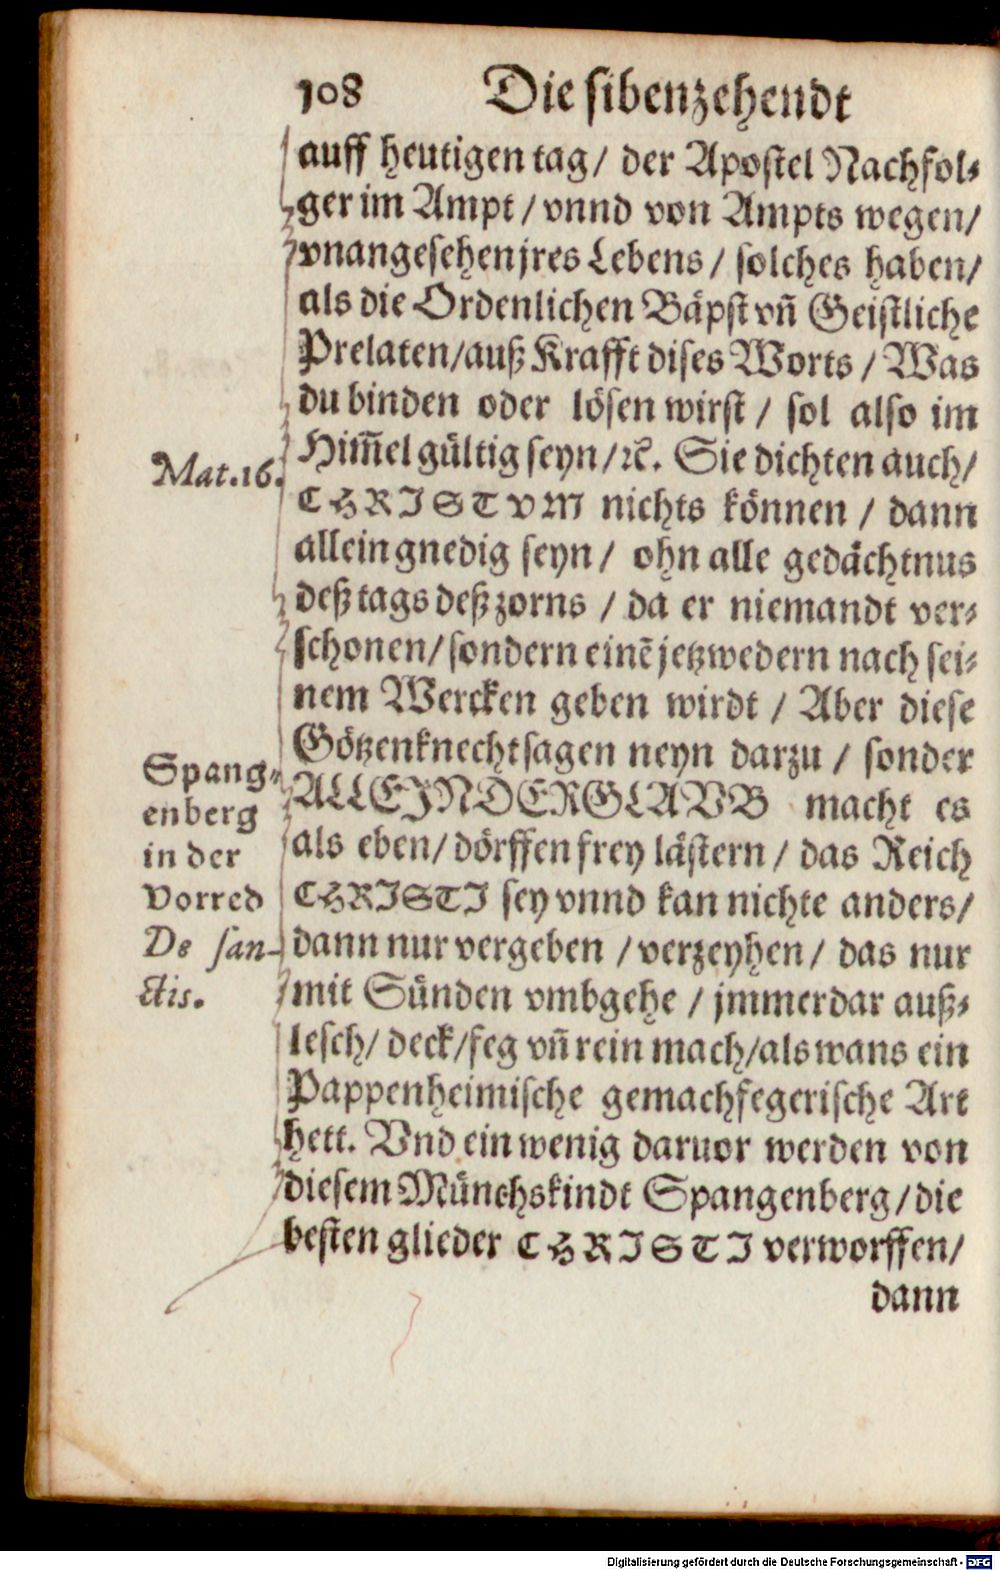 108 Die sibenzehendt
auff heutigen tag / der Apostel Nachfol-
ger im Ampt / vnnd von Ampts wegen /
vnangesehen jres Lebens / solches haben /
als die Ordenlichen Bäpst vñ Geistliche
Prelaten / auß Krafft dises Worts / Was
du binden oder lösen wirst / sol also im
Him̃el gültig seyn / ꝛc. Sie dichten auch /
CHRISTVM nichts können / dann
allein gnedig seyn / ohn alle gedächtnus
deß tags deß zorns / da er niemandt ver-
schonen / sondern einẽ jetzwedern nach sei-
nem Wercken geben wirdt / Aber diese
Götzenknecht sagen neyn darzu / sonder
ALLEIN DER GLAVB macht es
als eben / dörffen frey lästern / das Reich
CHRISTI sey vnnd kan nichte anders /
dann nur vergeben / verzeyhen / das nur
mit Sünden vmbgehe / jmmerdar auß-
lesch / deck / feg vñ rein mach / als wans ein
Pappenheimische gemachfegerische Art
hett. Vnd ein wenig daruor werden von
diesem Münchskindt Spangenberg / die
besten glieder CHRISTI verworffen /
dann
Mat. 16.
Spang-
enberg
in der
Vorred
De san-
ctis.
Digitalisierung gefördert durch die Deutsche Forschungsgemeinschaft - DFG